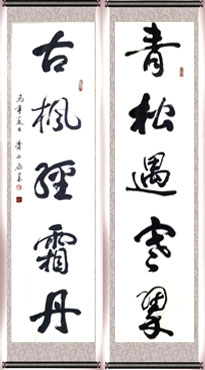 青松遇寒翠
古楓經霜丹